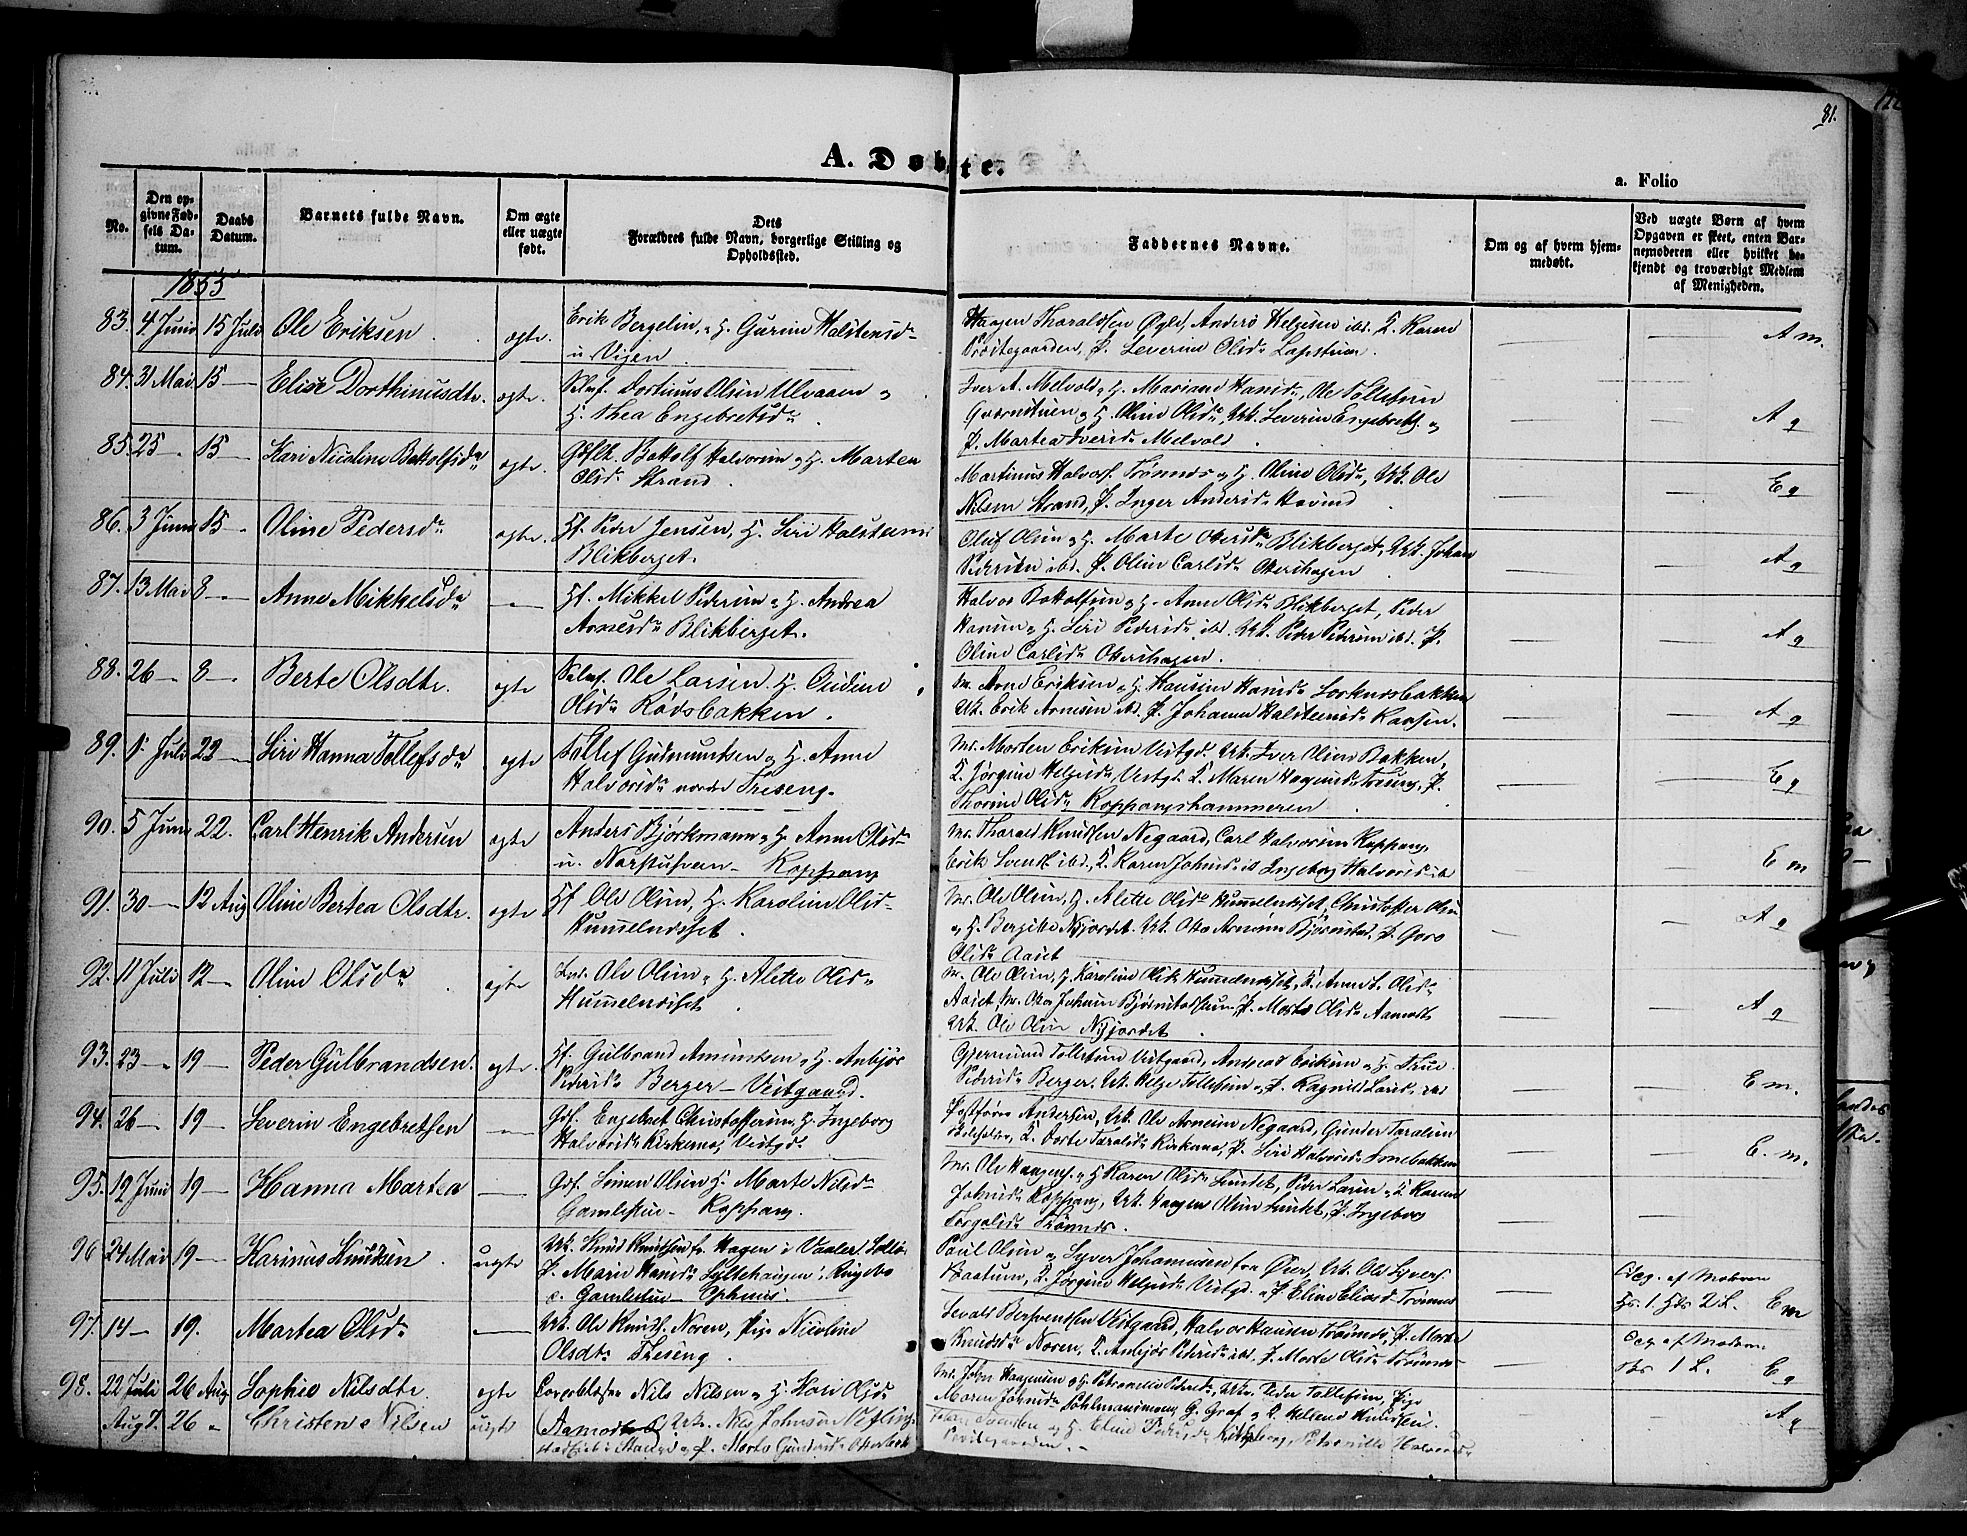 81.
A. Døbte.
a. Folio
No.
Den op-
givne Fød-
sels Da-
tum.
Daabs
Datum.
Barnets fulde Navn.
Om ægte
eller uægte
født.
Dets
Forældres fulde Navn, borgerlige Stilling og
Opholdssted.
Faddernes Navne.
Om og af hvem hjem-
medøbt.
Ved uægte Børn af hvem
Opgaven er skeet, enten Bar-
nemoderen eller hvilket be-
kjendt og troværdigt Medlem
af Menigheden.
1855
83. 4 Juni 15 Juli Ole Eriksen ægte.
Erik Bergelin, H. Gurine Halstensd
Vigen
Haagen Tharaldsen Anders Helgesen ibd. K. Karen
Præstegaarden, P. Severine Olsd Lapstuen.
A m.
84. 31 Mai 15 — Elise Dorthinusdtr. ægte.
Selvef. Dortinus Olsen Ulvaaen og
H. Thea Engebretsd
Iver A. Melvold og H. Mariane Hansd, Ole Tollefsen
Gværnstuen og H. Oline Olsd, Uk. Severin Engebreths. og
P. Martea Iversd Melvold
A g
85. 25 — 15 — Kari Nicoline Bottolfsd ægte.
Gbslk. Bottolf Halvorsen og H. Marten
Olsd Strand
Martinus Halvors. Trønnes og H. Oline Olsd, Uk. Ole
Nilsen Strand, P. Inger Andersd Hovind
E g
86. 3 Juni 15 — Oline Pedersd ægte.
Hf. Peder Jensen, H. Siri Halsteens
Blikberget.
Oluf Olsen og H. Marte Blikberget, Uk. Johan
Pedersen ibd. P. Oline Carlsd Ottershagen
A g
87. 13 Mai 8 — Anne Mikkelsd —
Hf. Mikkel Pedersen og H. Andrea
Arnesd Blikberget.
Halvor Bottolfsen og H. Anne Olsd Blikberget, Peder
Hansen og H. Siri Pedersd ibd. Uk. Peder Pedersen ibd. P.
Oline Carlsd Ottershagen.
A g
88. 26 — 8 — Berte Olsdtr. ægte
Selvef. Ole Larsen H. Oudine
Olsd Rødsbakken.
Arne Eriksen og H. Hansine Hansd Lorknesbakken
Uk. Erik Arnesen ibd. P. Johanne Halsteensd Kaasen.
A g
89. 1. Juli 22 — Siri Hanna Tollefsd ægte
Tollef Gudmundsen og H. Anne
Halvorsd nordre Treseng.
Mr. Morten Eriksen Vestgd. Uk. Iver Olsen Bakken,
K. Jørgine Helgesd Vestgd. K. Maren Haagensd Treseng, P.
Thorine Olsd Koppangshammeren
E g
90. 5 Juni 22. Carl Henrik Andersen ægte
Anders Bjørkmann og H. Anne Olsd
u. Narstustuen — Koppang
Mr. Tharald Knudsen Negaard, Carl Halvorsen Koppang,
Erik Svends. ibd., K. Karen Johnsd. ib. Ingeborg Halvorsd ib
E m
91. 30 — 12 Aug Oline Bertea Olsdtr. ægte
Hf. Ole Olsen, H. Karoline Olsd
Hummelnesset.
Mr. Ole Olsen, H. Alette Olsd Hummelnesset, Christoffer Olsen
og H. Bergitte Nyjordet. Uk. Otto Arnesen Bjørnstad, P. Goro
Olsd Aaset
A g
92. 11 Juli 12 — Oline Olsd ægte
Ole Olsen og H. Alette Olsd
Hummelnesset
Ole Olsen, H. Karoline Olsd Hummelnesset, K. Anne L. Olsd
Aaset, Mr. Otto Johnsen Bjørnstadstuen, P. Marte Olsd Aamodt
Uk. Ole Olsen Nyjordet
A g
93. 23 — 19 — Peder Gulbrandsen. ægte.
Hf. Gulbrand Amundsen og H. Anbjør
Pedersd Berger — Vestgaard.
Gjermund Tollefsen Vestgaard, Andreas Eriksen og H. True
Pedersd Berger, Uk. Helge Tollefsen og P. Ragnild Larsd ibd
E m.
94. 26 — 19 — Severin Engebretsen —
Gbf. Engebret Christoffersen, H. Ingeborg
Halvorsd Kirkenes, Vestgd
Postfører Andersen, Uk. Ole Arnesen Negaard, Gunder Taralsen
K. Dorte Taralsd Kirkenes, P. Siri Halvorsd
E. m.
95. 12 Juni 19 — Hanna Martea —
Gbf. Simen Olsen H. Marte Nilsd
Gamlestue — Koppang.
Mr. Ole Haagens. og H. Karen Olsd Sundet, Peder Larsen og K. Karen
Johnsd Koppang, Uk. Haagen Olsen Sundet, P. Ingeborg
Torgalsd Trønnes.
96 24 Mai 19 — Karinus Knudsen uægte
Uk. Knud Knudsen fr. Hagen i Vaaler Solør
P. Marie Hansd Lyttehaugen, Ringebo
c. Gamlestue — Ophuus.
Paul Olsen og Syver Johannesen fra Øier, Uk. Ole Syvers.
Baastuen, K. Jørgine Helgesd Vestgd. og P. Eline Eliasd. Trønnes
Opg. af Moderen
Hs. 1. Hds 2 L. E m
97. 14 — 19. Martea Olsd —
Uk. Ole Knuds. Noren, Pige Nicoline
Olsdtr Treseng.
Sevald Berfventsen Vestgaard, Halvor Hansen Trønnes, P. Marte
Knudsd Noren, K. Anbjør Pedersd ibd. P. Marte Olsd Trønnes
Opg af Moderen
1 L. E g
98. 22 Juli 26 Aug Sophie Nilsdtr. ægte
Nils Nilsen og H. Kari Olsd
Aamodt
Mr. John Haagensen og H. Petronelle Pedersd, Uk. Peder Tollefsen, Pige
Maren Johnsd G. Graf og K. Helene Knudsen.
A g
Aug 7. 26 — Christen Nilsen uægte
Uk. Nils Johnsen
og P. Marte Gundersd
og H. Eline Pedersd Petronille Halvorsd